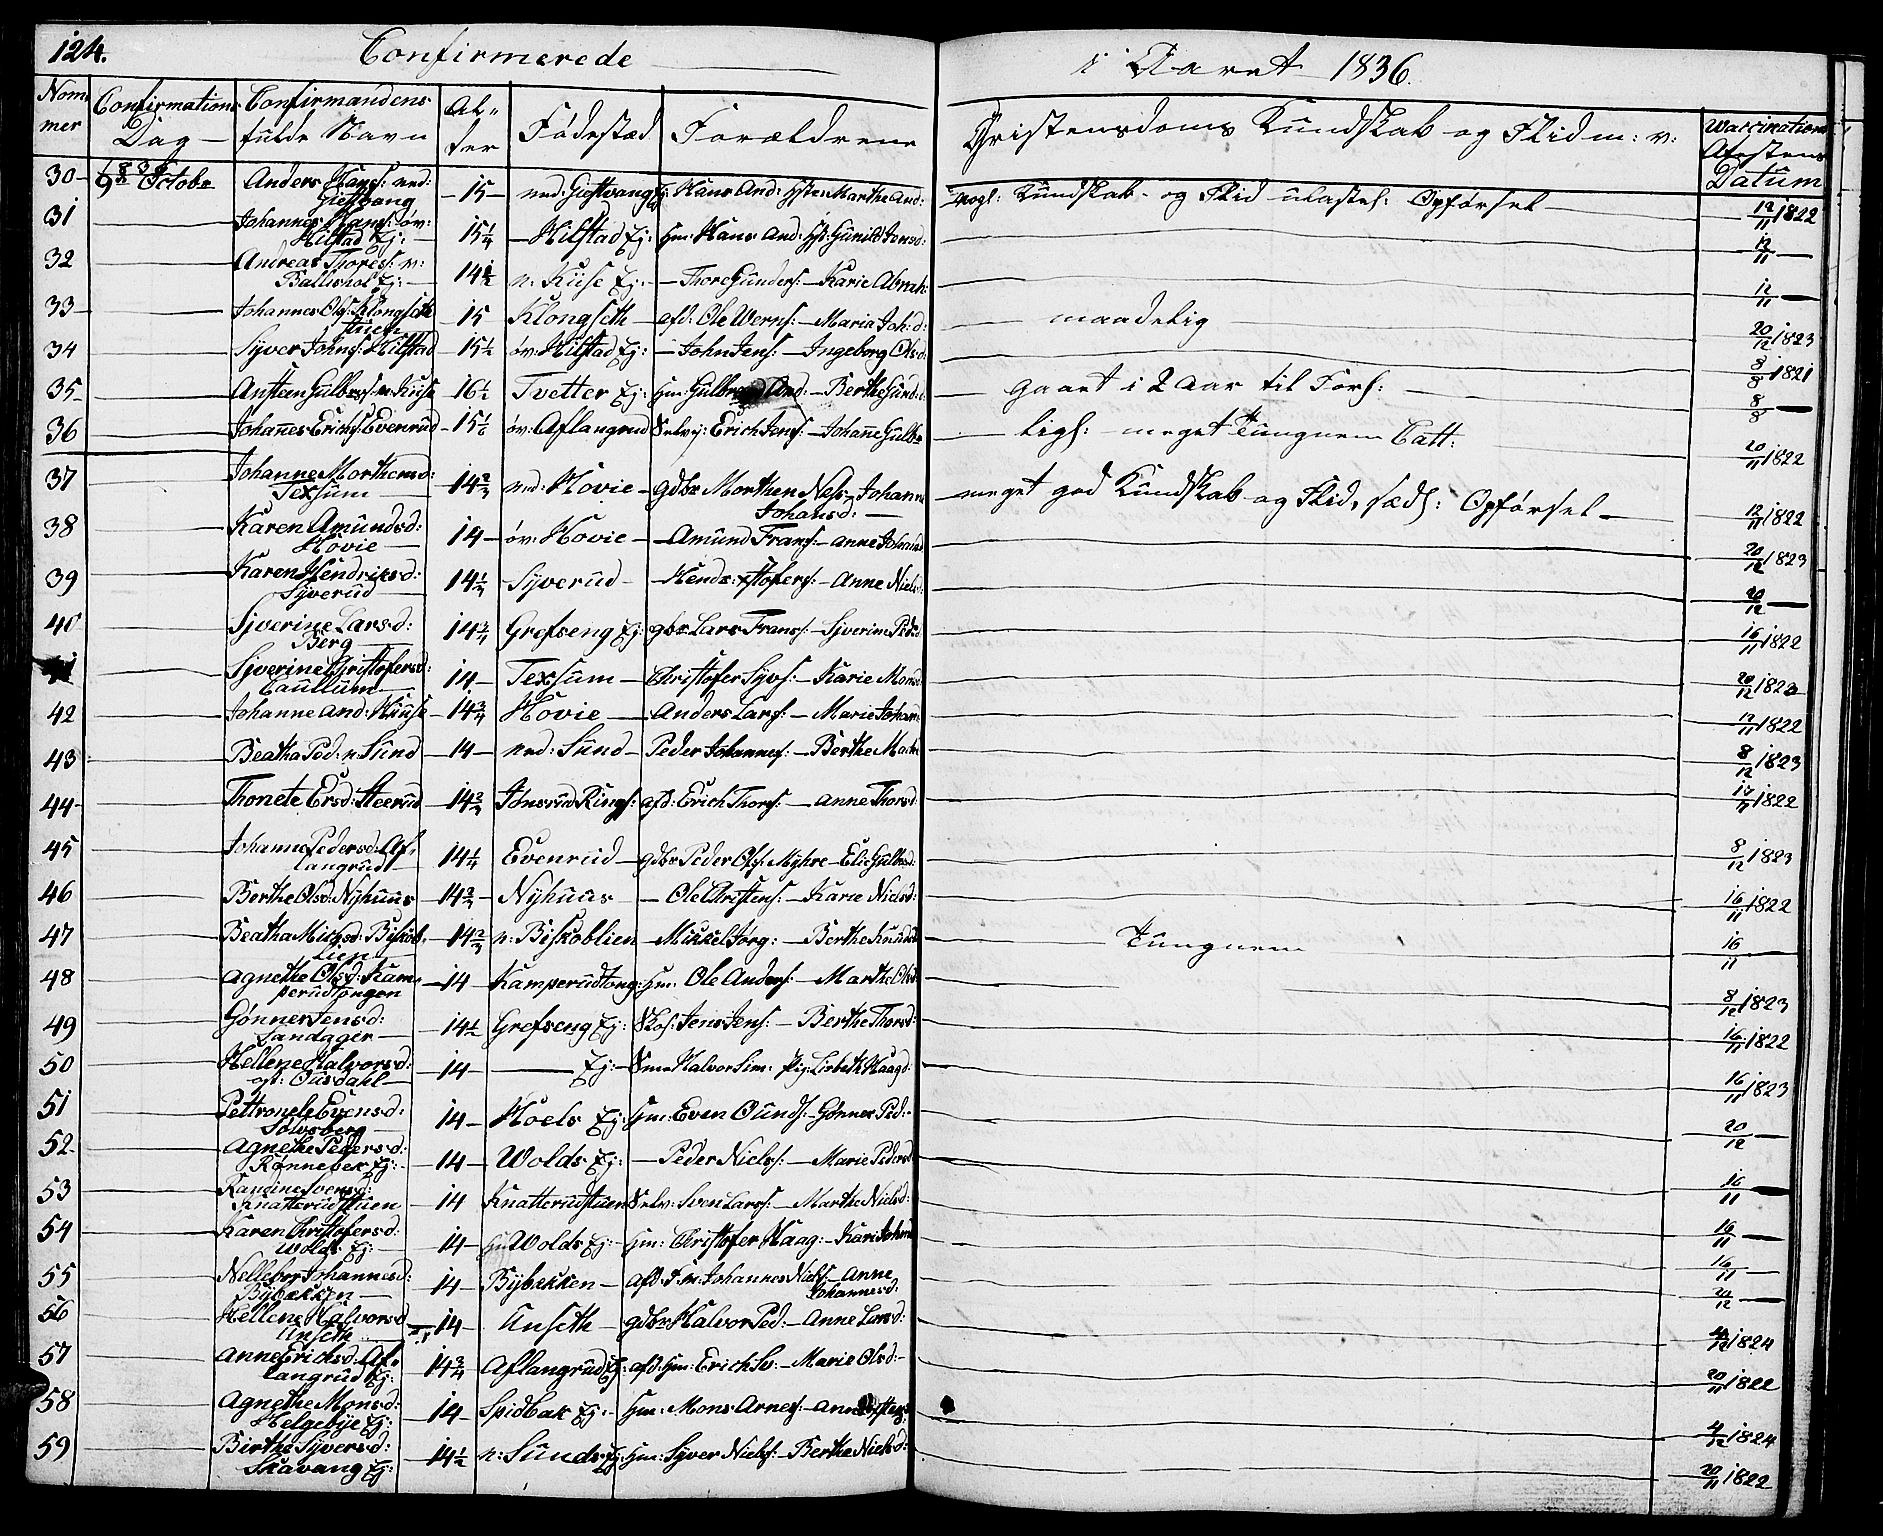 124. Confirmerede i Aaret 1836.
Nommer Confirmations Dag Confirmandens fulde Navn Alder Fødestæd Forældrene Christendoms Kundskab og Flid m: v: Vaccinations Attestens Datum
30 October Anders Hans: ned: Gjestvang 15 ned: Gjestvang Ej: Hans And: Marthe And: Kundskab og Flid ulastel: Opførsel 12/11 1822
31 Johannes Hans: øv: Hilstad Ej: 15 1/4 Hilstad Ej: Hm: Hans And: Gunild Jonsd: 12/11
32 Andreas Thores: v: Ballishol Ej: 14 1/2 n: Kiise Ej: Thore Gunders: Karie Abrah: 12/11
33 Johannes Ols: Klongseth 15 Klongseth afd: Ole Werns: Maria Joh: d: maadelig 20/12 1823
34 Syver Johns: Hilstad 15 1/2 øv: Hilstad Ej: John Jens: Ingeborg Ols: d: 8/8 1821
35 Ansteen Gulbrs: n: Kiise 16 1/2 Tvetter Ej: Hm: And: Berthe Gund: d: gaaet i 2 Aar til Fors: 8/8
36 Johañes Erichs: Evenrud 15 1/2 øv: Aflangrud Selvej: Erich Jens: Johañe Gulbr ligl: meget Tungnem Catt: 20/11 1822
37 Johanne Morthensd: Texsum 14 2/3 ned: Hovie gdbr Morthen Nels: Johanne Johansd: meget god Kundskab og Flid, sædl: Opførsel 12/11 1822
38 Karen Amundsd: Hovie 14 øv: Hovie Amund Frans: Anne Johansd 20/12 1823
39 Karen Hendriksd: Syverud 14 1/2 Syverud Hendr: Anne Nielsd: 20/12
40 Syverine Larsd: Berg 14 3/4 Grefseng Ej: gbr Lars Frans: Syverine Pedsd 16/11 1822
Syverine Christofersd: Caullum 14 Texsum Christofer Syvs: Karie Monsd 20/12 1823
42 Johanne And: Hiise 14 3/4 Hovie Anders Lars: Marie Johan: 12/11 1822
43 Beatha Ped: n: Sund 14 ned: Sund Peder Johannes: Berthe 8/12 1823
44 Thonete Ersd: Steerud 14 2/3 Jønsrud Rings: afd: Erich Thors: Anne Thorsd: 12/11 1822
45 Johanne Pedersd: Aflangrud 14 1/4 Evenrud gdbr Peder Ols: Myhre Elie Gulbsd: 8/12 1823
46 Berthe Olsd: Nyhuus 14 2/3 Nyhuus Ole Christens: Karie Nielsd: 16/11 1822
47 Beatha Micksd: Biskoblien 14 2/3 n: Biskoblien Mikkel Jørg: Berthe Knudsd Tungnem 16/11
48 Agnethe Olsd: Kamperudtongen 14 Kamperudtong: Hm: Ole Anders: Marthe Olsd 8/12 1823
49 Gønner Jensd: Sandager 14 1/2 Grefseng Ej: Skos: Jens Jens: Berthe Thorsd: 16/11 1822
50 Hellene Halvorsd: Ousdahl 14 Ej: Halvor Sim: Pig: Lisbeth Haagd: 16/11 1823
51 Pettronele Evensd: Solvsberg 14 Hoels Ej: Hm: Even Ounds: Gønner Ped: 20/12
52 Agnethe Pedersd: Rønnebek Ej: 14 Wolds Ej: Peder Niels: Marie Pedersd 16/11
53 Randine Svensd: Knatterudstuen 14 Knatterudstuen Selv: Sven Lars: Marthe Nielsd: 16/11
54 Karen Christofersd: Wolds Ej: 14 Wolds Ej: Hm: Christofer Haag: Kari Johnsd 16/11
55 Nelleber Johannesd: Bybækken 14 Bybækken afd: Johannes Niels: Anne Johannesd: 20/12
56 Hellene Halvorsd Anseth 14 Anseth gdbr Halvor Ped: Anne Larsd: 4/12 1824
57 Anne Erichsd: Aflangrud Ej: 14 3/4 Aflangrud Ej: afd: Hm: Erich Sv: Marie Olsd: 20/11 1822
58 Agnethe Monsd: Helgebye Ej: 14 Spidbak Ej: Hm: Mons Arnes: 4/12 1824
59 Birthe Syversd: Skavang Ej: 14 1/2 n: Sunds Ej: Hm: Syver Niels: Berthe Nielsd: 20/11 1822